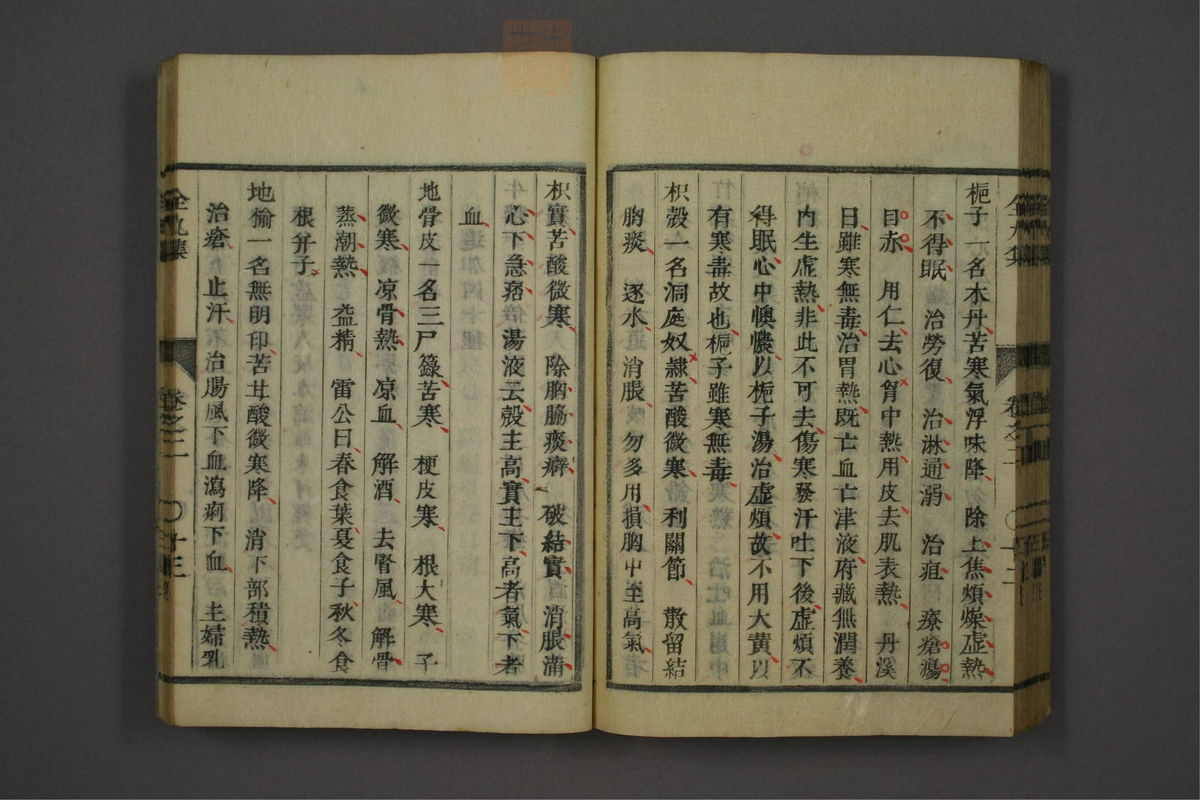 梔子一名木丹苦寒氣浮味降 除上焦煩燥虛熱
不得眠 治勞復 治淋通溺 治疽 療瘡瘍
目赤 用仁去心胷中熱用皮去肌表熱 丹溪
曰雖寒無毒治胃熱既亡血亡津液府藏無潤養
内生虛熱非此不可去傷寒發汗吐下後虛煩不
得眠心中懊憹以梔子湯治虛煩故不用大黃以
有寒毒故也梔子雖寒無毒
枳殻一名洞庭奴隷苦酸微寒 利關節 散留結
胸痰 逐水 消脹 勿多用損胸中至高氣
枳實苦酸微寒 除胸脇痰癖 破結實 消脹滿
心下急痞 湯液云殻主高實主下高者氣下者
血
地骨皮一名三尸籙苦寒 梗皮寒 根大寒 子
微寒 凉骨熱 凉血 解酒 去腎風 解骨
蒸潮熱 益精 雷公曰春食葉夏食子秋冬食
根并子
地榆一名無明印苦甘酸微寒降 消下部積熱
治瘡 止汗 治腸風下血瀉痢下血 主婦乳
全九集 卷之二 十三